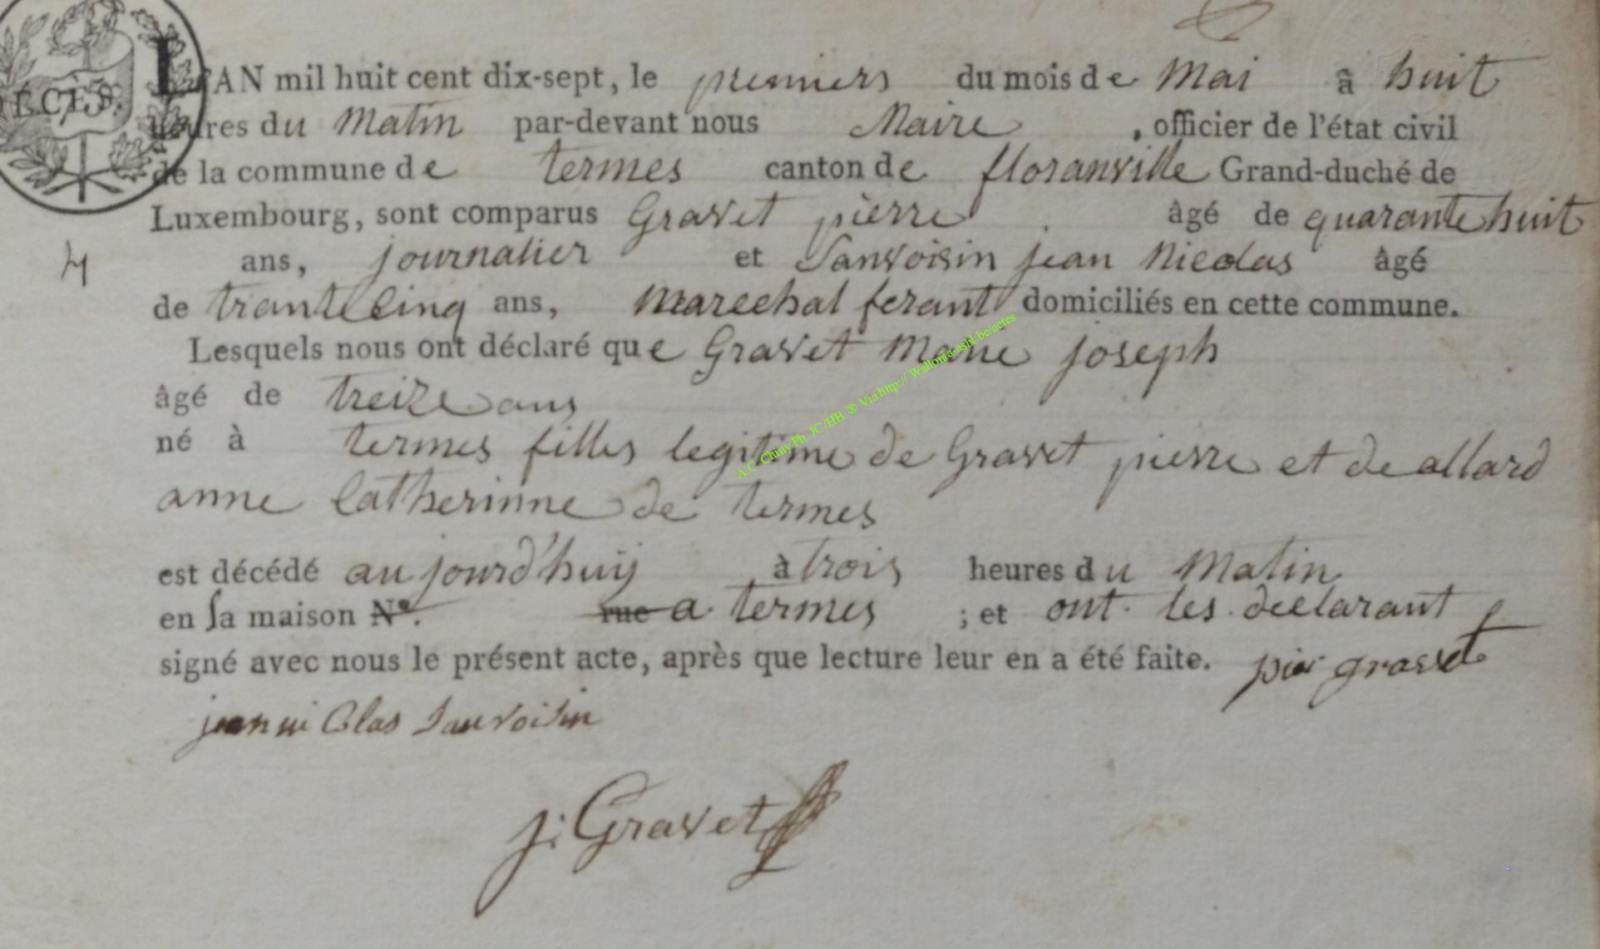 L'AN mil huit cent dix-sept, le premiers du mois de Mai à huit
heures du Matin par-devant nous Maire , officier de l'état civil
de la commune de termes canton de floranville Grand-duché de
Luxembourg, sont comparus Gravet pierre âgé de quarante huit
4 ans, journalier et Sanvoisin jean Nicolas âgé
de trante cinq ans, Marechal ferant domiciliés en cette commune.
Lesquels nous ont déclaré que Gravet Marie joseph
âgé de treize ans
né à termes filles legitime de Gravet pierre et de allard
anne Catherinne de termes
est décédé aujourd'huy à trois heures du Matin
en sa maison N°. rue a termes ; et ont les declarant
signé avec nous le présent acte, après que lecture leur en a été faite. pier gravet
jean ni Colas Sauvoisin
j: Gravet